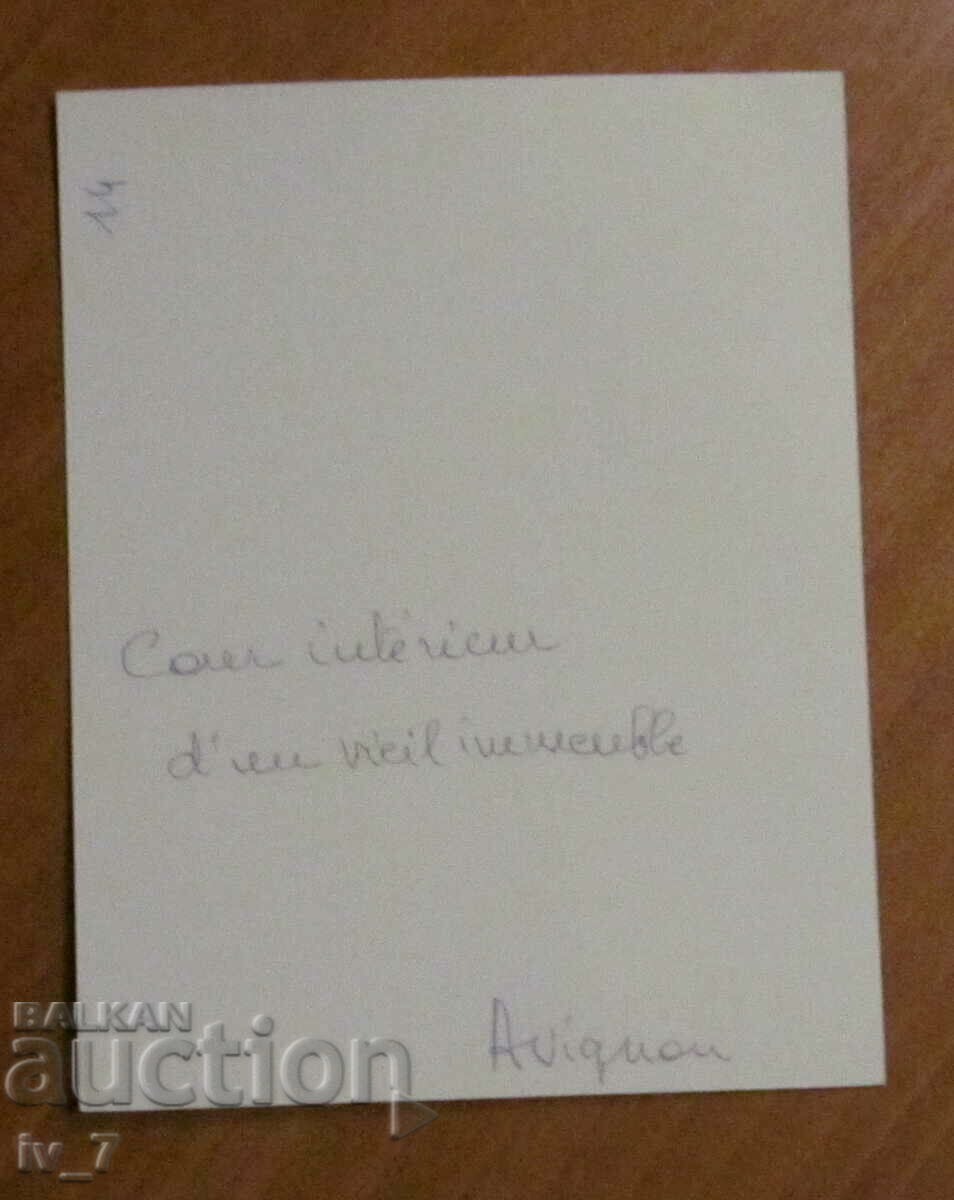 14
Cour intérieur
d'un vieil immeuble
Avignon
BALKAN
auction
iv_7